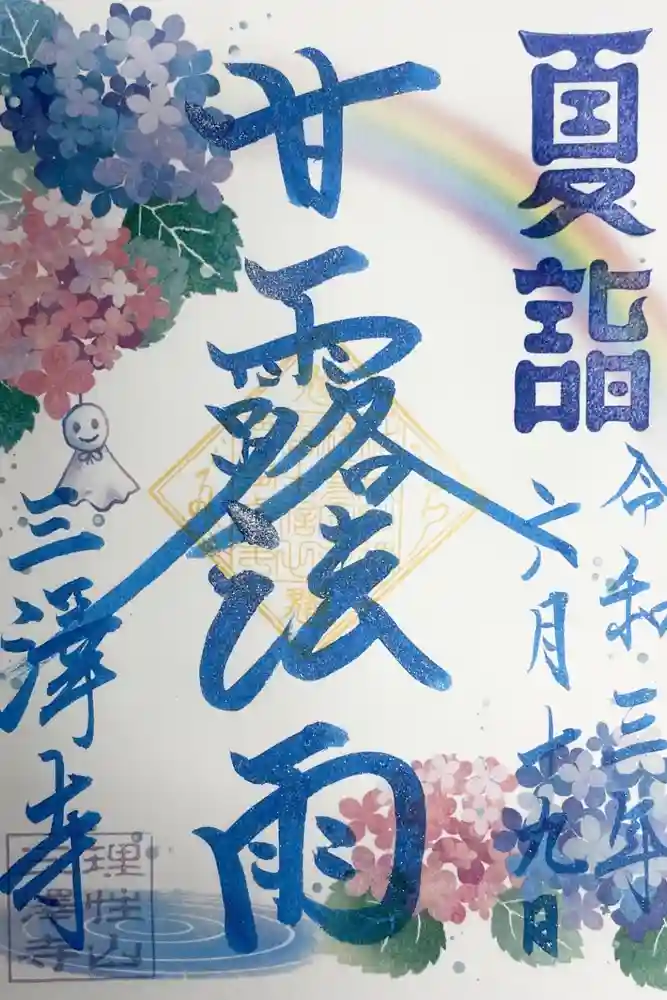 夏詣
令和三年
六月十九日
甘露法雨
三澤寺
理性山
三澤寺